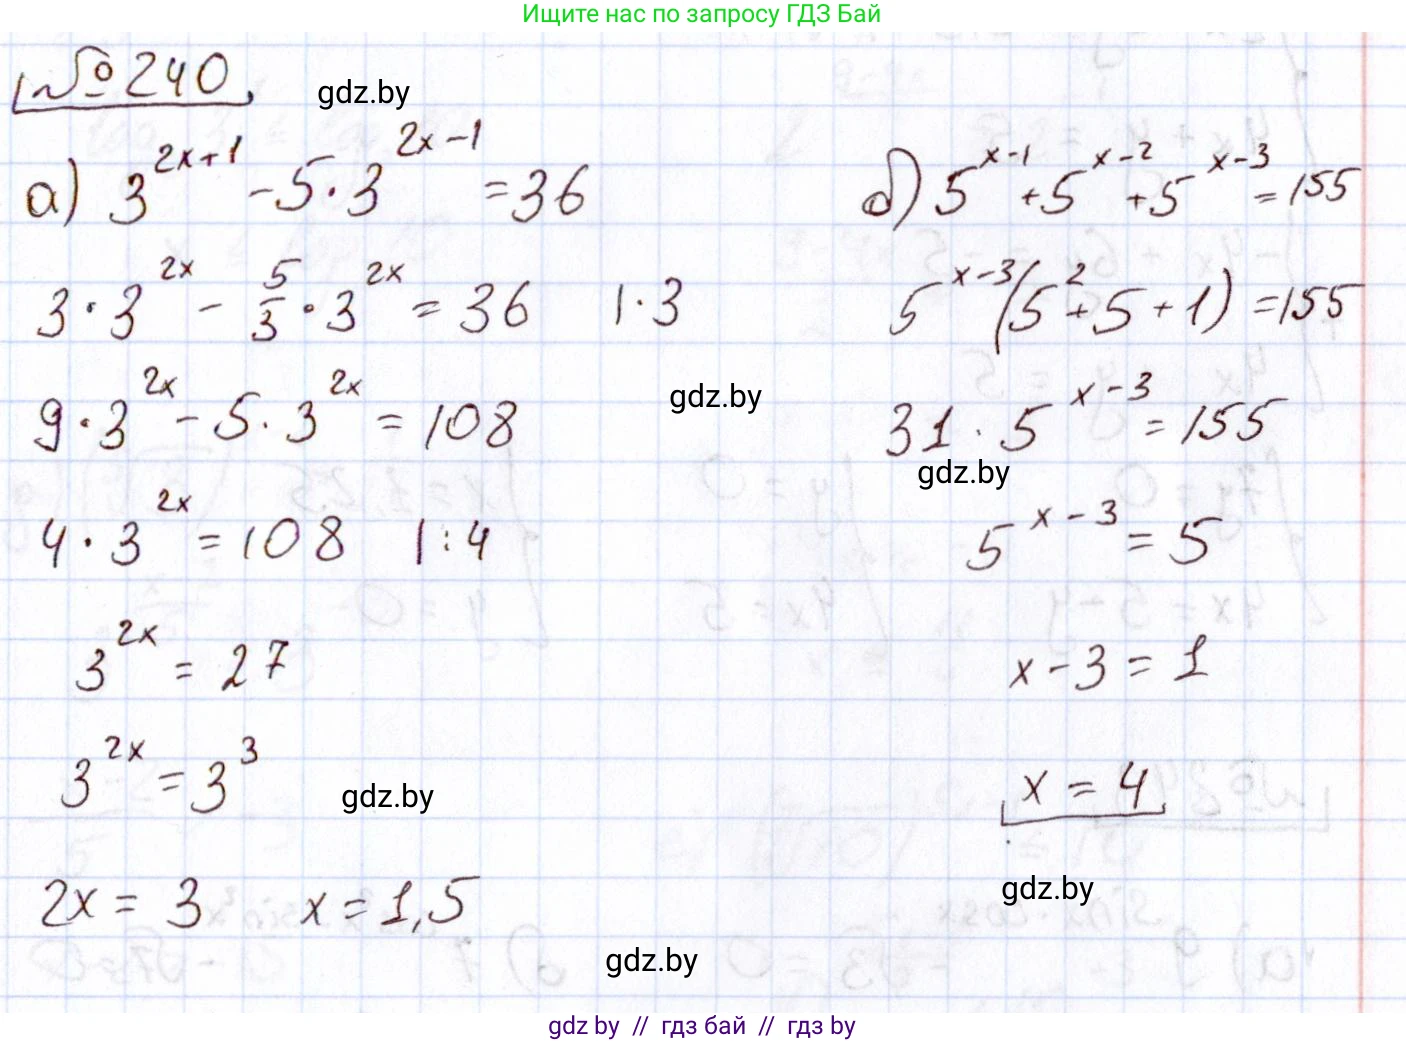 Ищите нас по запросу ГДЗ Бай
№ 240
gdz.by
а) 3^(2x+1) - 5·3^(2x-1) = 36
3·3^(2x) - 5/3·3^(2x) = 36 |·3
9·3^(2x) - 5·3^(2x) = 108
4·3^(2x) = 108 |:4
3^(2x) = 27
3^(2x) = 3^3
2x = 3 x = 1,5
б) 5^(x-1) + 5^(x-2) + 5^(x-3) = 155
5^(x-3)(5^2 + 5 + 1) = 155
gdz.by
31·5^(x-3) = 155
gdz.by
5^(x-3) = 5
x - 3 = 1
x = 4
gdz.by
gdz.by
gdz.by
gdz by // гдз бай // гдз by